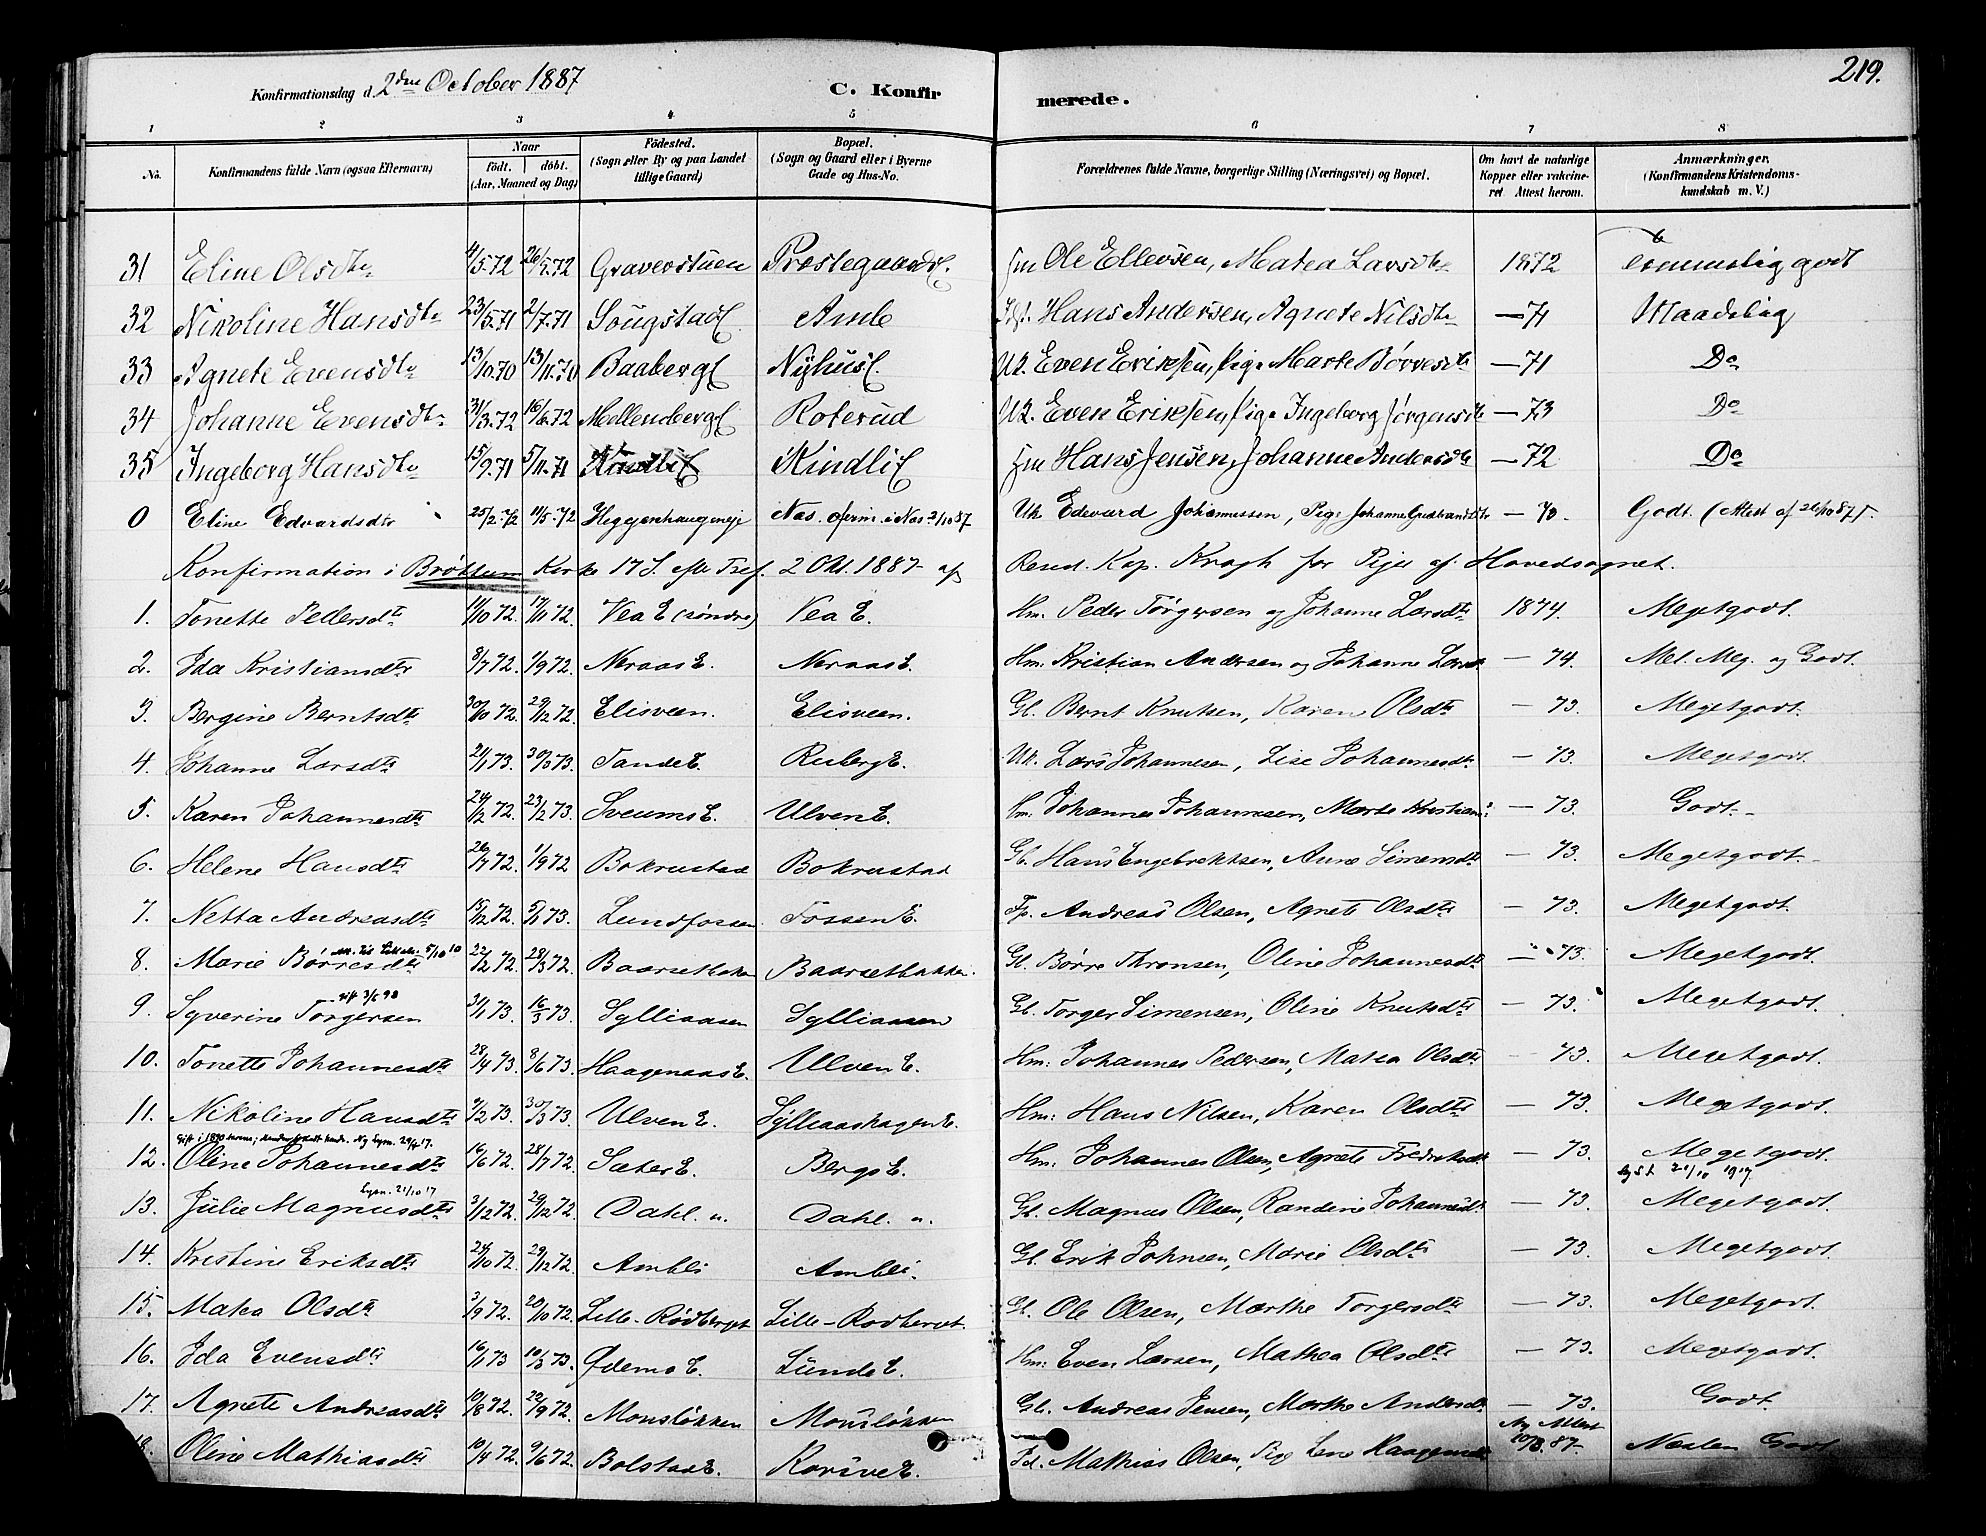 Konfirmationsdag d. 2den October 1887 C. Konfirmerede. 219.
1 2 3 4 5 6 7 8
No. Konfirmandens fulde Navn (ogsaa Efternavn) Naar født. døbt. (Aar, Maaned og Dag) Födested. (Sogn eller By og paa Landet tillige Gaard) Bopæl. (Sogn og Gaard eller i Byerne Gade og Hus-No. Forældrenes fulde Navne, borgerlige Stilling (Næringsvei) og Bopæl. Om havt de naturlige Kopper eller vakcineret Attest herom. Anmærkninger, (Konfirmandens Kristendomskundskab m. V.)
31 Eline Olsdtr 4/5.72 26/5.72 Graverstuen Præstegaards. Hm Ole Ellevsen, Matea Larsdtr 1872 Temmelig godt
32 Nikoline Hansdtr 23/5.71 2/7.71 Sougstad E Amb Hans Andersen, Agnete Nilsdtr —71 Maadelig
33 Agnete Evensdtr 13/10.70 13/11.70 Baaberg E Nyhus E. Uk. Even Eriksen, Pige Marte Børresdtr —71 Do
34 Johanne Evensdtr 31/3.72 16/6.72 Mellemberg E Roterud Uk. Even Eriksen, Pige Ingeborg Jørgensdtr —73 Do
35 Ingeborg Hansdtr 15/9.71 5/11.71 Kindli E Kindli E Hm Hans Jensen, Johanne Andersdtr —72 Do
0 Eline Edvardsdtr 25/2.72 11/5.72 Heggenhaugeneje Nas. Uk Edevard Johannessen, Pige Johanne Gudbrandsdtr — 73. Godt. (Attest af 26/10 87).
Konfirmation i Brøttum Kirke 17 S. efter Tref. 2 Okt. 1887 af Resid. Kap. Kragh for Piger af Hovedsognet.
1. Tonette Pedersdtr 11/10 72. 17/11 72. Vea E (søndre) Vea E. Hm. Peder Torgersen og Johanne Larsdtr 1874. Megetgodt.
2. Ida Kristiansdtr 8/7 72. 1/9 72. Neraas E. Neraas E. Hm. Kristian Andersen og Johanne Larsd. — 74. Mel. Meg. og Godt.
3. Bergine Berntsdtr 30/10 72. 29/12 72. Elisveen. Elisveen. Gl. Bernt Knutsen, Karen Olsdtr — 73. Megetgodt.
4. Johanne Larsdtr 21/1 73. 30/3 73. Tande E. Ruberg E. Uk. Lars Johannesen, Lise Johannesdtr — 73. Megetgodt.
5. Karen Johannesdtr 24/12 72. 23/2 73. Sveums E. Ulven E. Hm. Johannes Johannesen, Marte Kristians — 73. Godt.
6. Helene Hansdtr 26/7 72. 1/9 72 Bokrustad Bokrustad Gl. Hans Engebrektsen, Anne Simensdtr — 73. Megetgodt.
7. Netta Andreasdtr 15/12 72. 5/1 73. Lundfossen Fossen E. Fp. Andreas Olsen, Agnete Olsdtr — 73. Megetgodt.
8. Marie Børresdtr 5/10 10 22/2 72. 28/3 72. Baarsetbaken Baarsetbakken. Gl. Børre Thronsen, Oline Johannesdtr — 73. Megetgodt.
9. Syverine Torgersen gift 3/6 98 31/1 73. 16/3 73. Sylliaasen Sylliaasen Gl. Torger Simensen, Oline Knutsdtr — 73. Megetgodt.
10. Tonette Johannesdtr 28/4 73. 8/6 73. Haagenaas E. Ulven E. Hm: Johannes Pedersen, Matea Olsdtr — 73. Megetgodt.
11. Nikoline Hansdtr 9/2 73. 30/3 73. Ulven E. Sylliaashagen E. Hm: Hans Nilsen, Karen Olsdtr — 73. Megetgodt.
12. Oline Johannesdtr 16/6 72. 28/7 72. Sæter E. Bergs E. Hm: Johannes Olsen, Agnete Fredriksdtr — 73. Megetgodt.
13. Julie Magnusdtr Lysn. 21/10 17 3/12 72. 29/12 72. Dahl. n. Dahl. n. Gl. Magnus Olsen, Randine Johannesdtr — 73. 21/10 1917. Megetgodt.
14. Kristine Eriksdtr 24/10 72. 29/12 72. Ambli Ambli. Gl. Erik Johnsen, Marie Olsdtr — 73. Megetgodt.
15. Matea Olsdtr 3/9 72. 20/10 72. Lille-Rødberget Lille-Rodberget. Gl. Ole Olsen, Marthe Torgersdtr — 73. Megetgodt.
16. Ida Evensdtr 16/1 73 10/3 73. Ødemo E. Lunde E. Hm: Even Larsen, Mathea Olsdtr — 73. Megetgodt.
17. Agnete Andreasdtr 10/8 72. 22/9 72. Monsløkken Monsløkken Gl. Andreas Jensen, Marthe Andersdtr — 73. Godt.
18. Oline Mathiasdtr 10/4 72. 9/6 72. Bolstad E. Korsve E. Fd. Mathias Olsen, Pige Lene Haagensdtr Ny Attest 87. Næsten Godt.